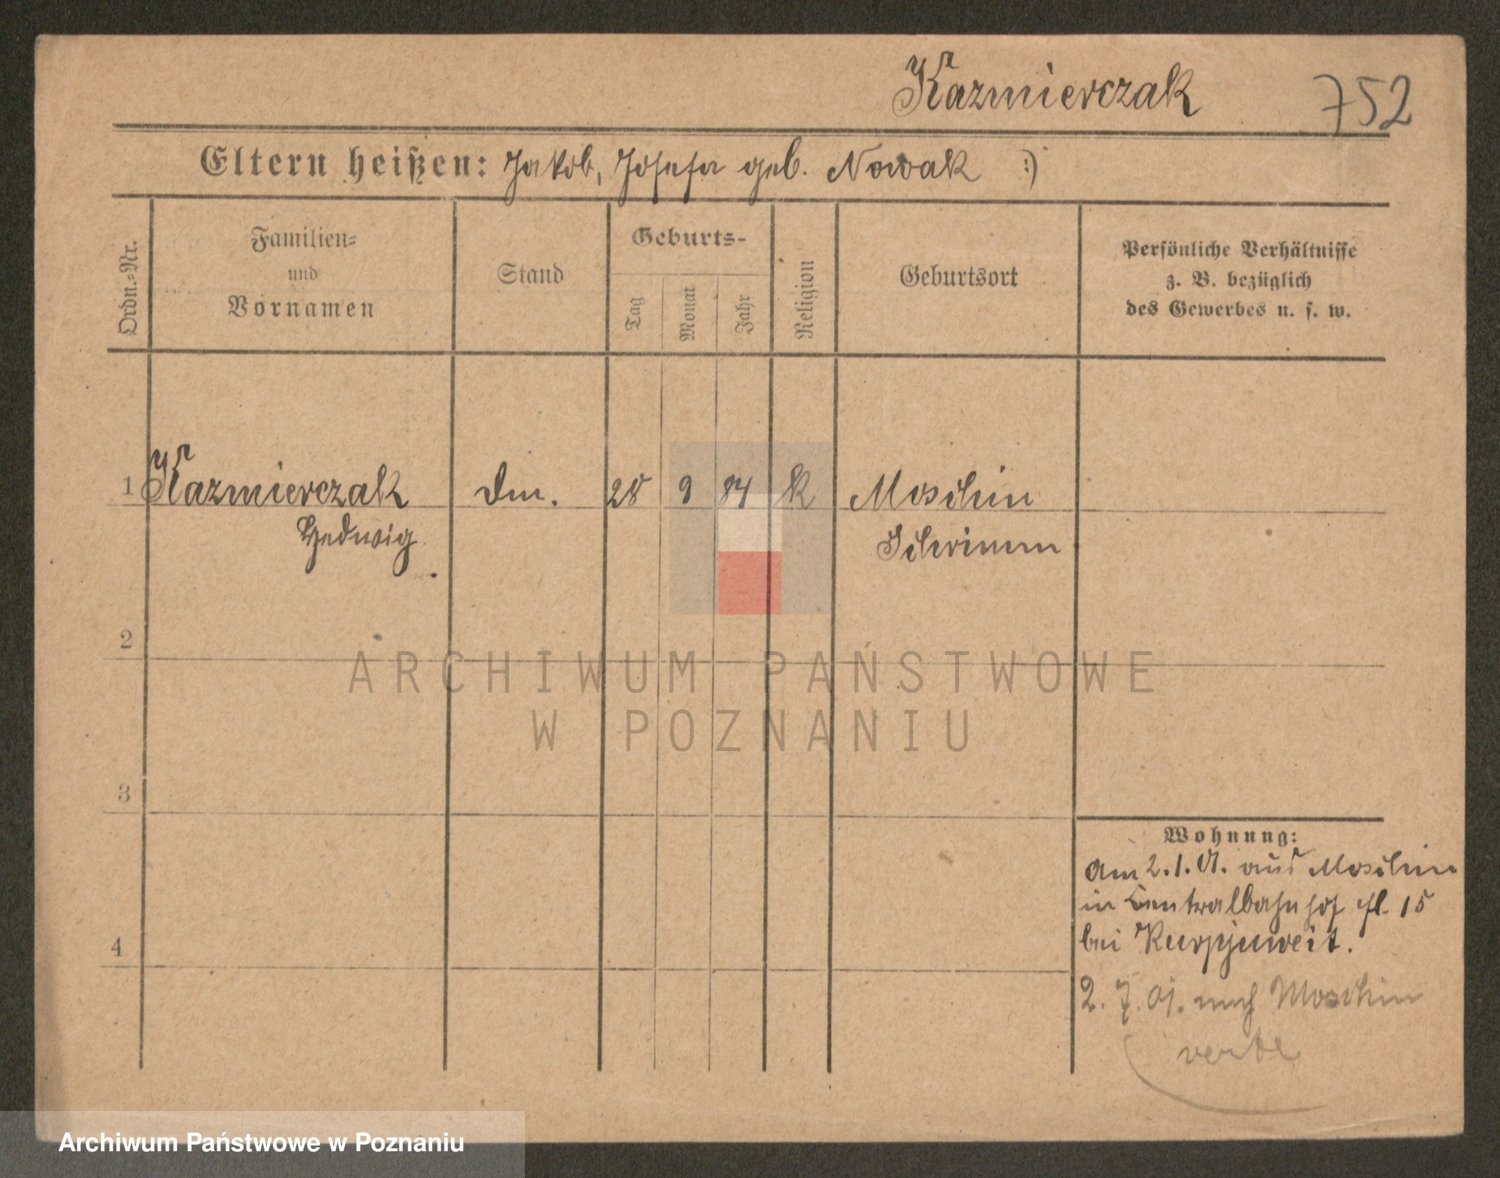 Kazmierczak 752
Eltern heißen: Jakob, Josefa geb. Nowak :)
Ordn.-Nr.
Familien-
und
Vornamen
Stand
Geburts-
Tag
Monat
Jahr
Religion
Geburtsort
Persönliche Verhältnisse
z. B. bezüglich
des Gewerbes u. s. w.
1 Kazmierczak Dm. 28 9 84 k Moschin
Hedwig Schrimm
2
ARCHIWUM PAŃSTWOWE
W POZNANIU
3
Wohnung:
am 2.1.01. aus Moschin
in Centralbahnhof 15
bei
4
2. 7. 01. nach Moschin
Archiwum Państwowe w Poznaniu